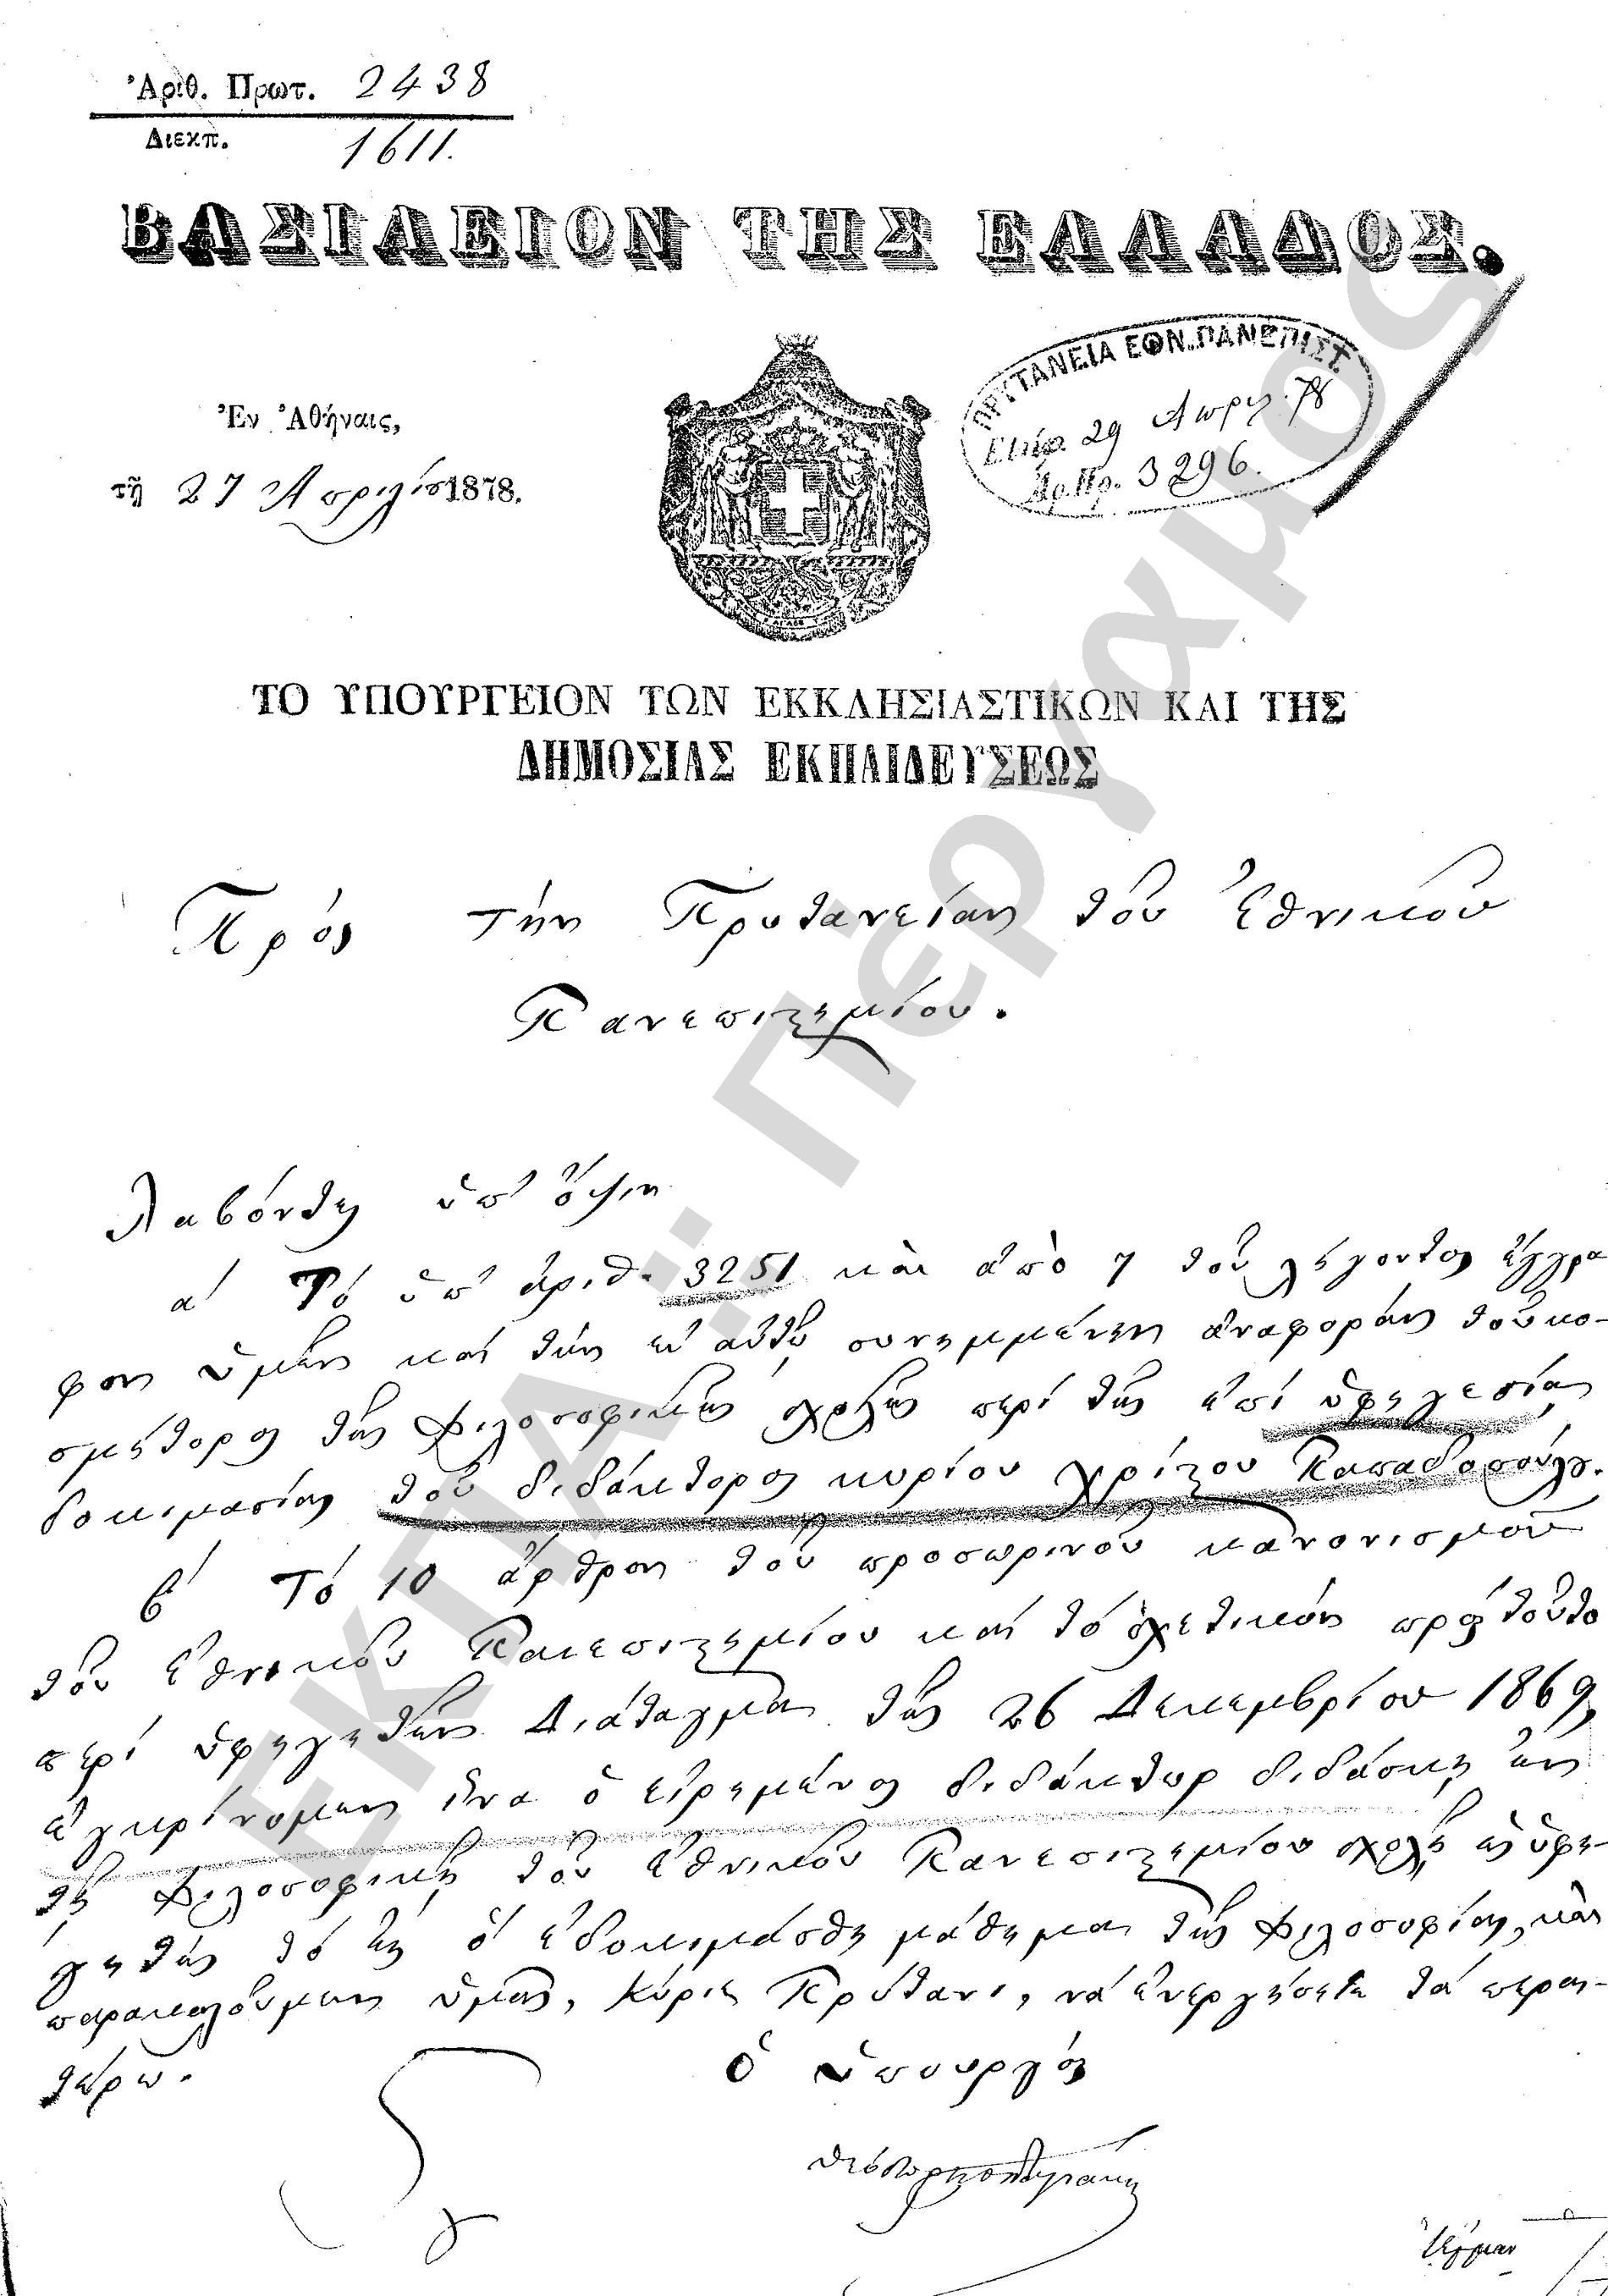 Ἀριθ. Πρωτ. 2438
Διεκπ. 1611.
ΒΑΣΙΛΕΙΟΝ ΤΗΣ ΕΛΛΑΔΟΣ.
ΠΡΥΤΑΝΕΙΑ ΕΘΝ. ΠΑΝΕΠΙΣΤ.
Ἐλήφ. 29 Απριλ. 78
Ἀρ. Πρ. 3296.
Ἐν Ἀθήναις,
τῇ 27 Απριλίου 1878.
ΤΟ ΥΠΟΥΡΓΕΙΟΝ ΤΩΝ ΕΚΚΛΗΣΙΑΣΤΙΚΩΝ ΚΑΙ ΤΗΣ
ΔΗΜΟΣΙΑΣ ΕΚΠΑΙΔΕΥΣΕΩΣ
Πρὸς τὴν Πρυτανείαν τοῦ Ἐθνικοῦ
Πανεπιστημίου.
Λαβόντες ὑπ' ὄψιν
α' Τό ὑπ' ἀριθ. 3251 καὶ ἀπὸ 7 τοῦ λήγοντος ἔγγρα
φον ὑμῶν καὶ τὴν ἐν αὐτῷ συνημμένην ἀναφορὰν τοῦ κο-
σμήτορος τῆς Φιλοσοφικῆς σχολῆς περὶ τῆς ἐπὶ ὑφηγεσίᾳ
δοκιμασίας τοῦ διδάκτορος κυρίου Χρίστου Παπαδοπούλου.
β' Τό 10 ἄρθρον τοῦ προσωρινοῦ κανονισμοῦ
τοῦ Ἐθνικοῦ Πανεπιστημίου καὶ τὸ σχετικὸν πρὸς τοῦτο
περὶ ὑφηγητῶν Διάταγμα τῆς 26 Δεκεμβρίου 1869,
ἐγκρίνομεν ἵνα ὁ εἰρημένος διδάκτωρ διδάσκῃ ἐν
τῇ Φιλοσοφικῇ τοῦ Ἐθνικοῦ Πανεπιστημίου σχολῇ ὡς ὑφη-
γητὴς τὸ ἐν ᾧ ἐδοκιμάσθη μάθημα τῆς Φιλοσοφίας, καὶ
παρακαλοῦμεν ὑμᾶς, Κύριε Πρύτανι, νὰ ἐνεργήσητε τὰ περαι-
τέρω.
Ὁ ὑπουργός
ΕΚΠΑ.: Πέργαμος